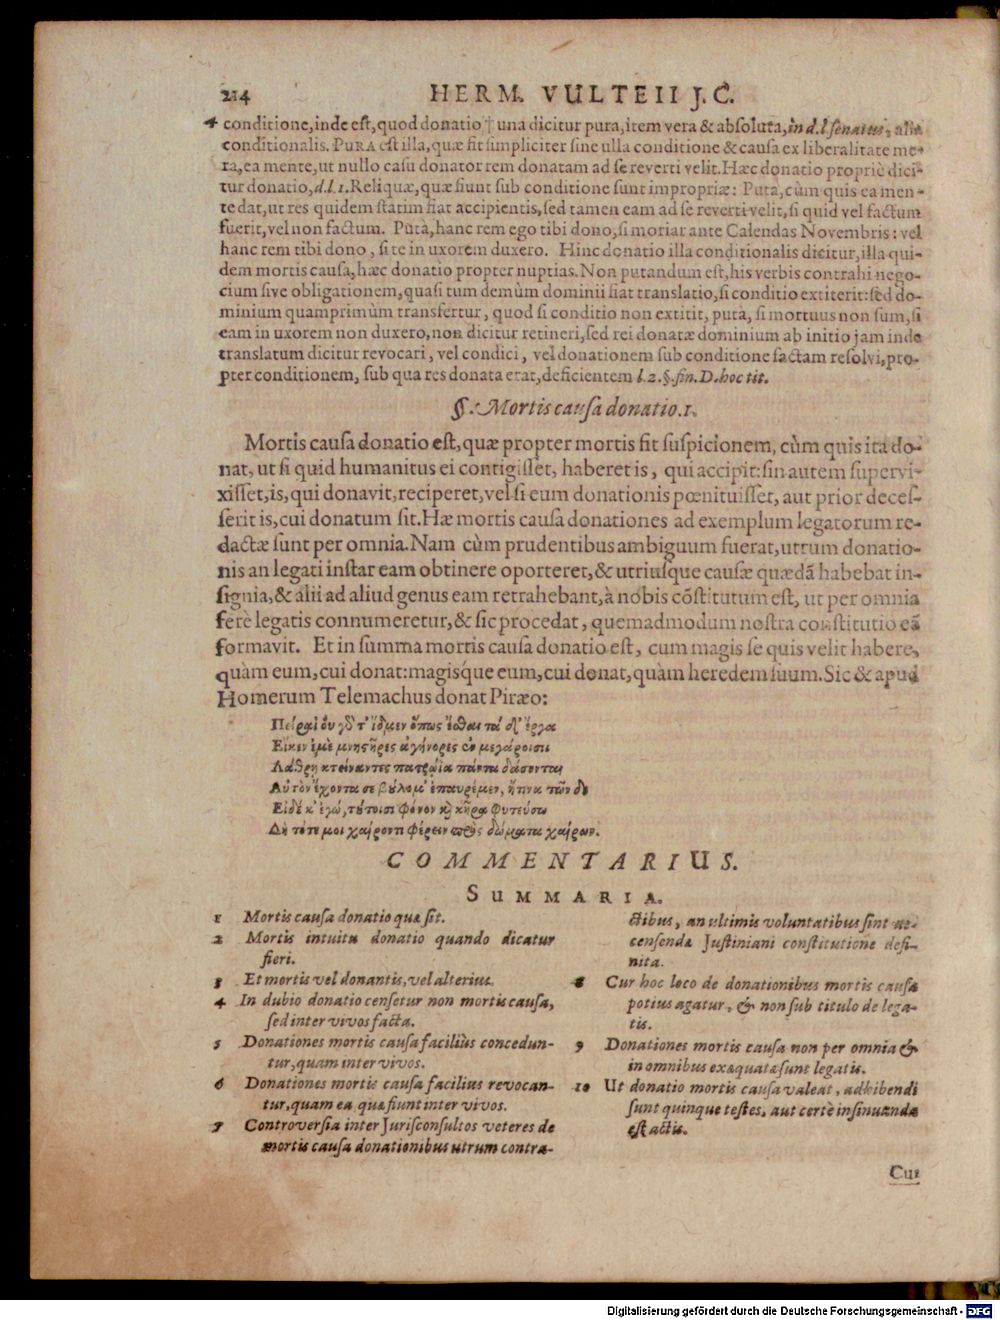 214 HERM. VULTEII J.C.
4 conditione, inde est, quod donatio † una dicitur pura, item vera & absoluta, in d.l. senatus, alia
conditionalis. PURA est illa, quæ fit simpliciter sine ulla conditione & causa ex liberalitate me-
ra, ea mente, ut nullo casu donator rem donatam ad se reverti velit. Hæc donatio propriè dici-
tur donatio, d.l.1. Reliquæ, quæ fiunt sub conditione sunt impropriæ: Puta, cùm quis ea men-
te dat, ut res quidem statim fiat accipientis, sed tamen eam ad se reverti velit, si quid vel factum
fuerit, vel non factum. Puta, hanc rem ego tibi dono, si moriar ante Calendas Novembris: vel
hanc rem tibi dono, si te in uxorem duxero. Hinc donatio illa conditionalis dicitur, illa qui-
dem mortis causa, hæc donatio propter nuptias. Non putandum est, his verbis contrahi nego-
cium sive obligationem, quasi tum demùm dominii fiat translatio, si conditio extiterit: sed do-
minium quamprimùm transfertur, quod si conditio non extitit, puta, si mortuus non sum, si
eam in uxorem non duxero, non dicitur retineri, sed rei donatæ dominium ab initio jam inde
translatum dicitur revocari, vel condici, vel donationem sub conditione factam resolvi, pro-
pter conditionem, sub qua res donata erat, deficientem l.2.§.fin.D.hoc tit.
§. Mortis causa donatio. 1.
Mortis causa donatio est, quæ propter mortis fit suspicionem, cùm quis ita do-
nat, ut si quid humanitus ei contigisset, haberet is, qui accipit: sin autem supervi-
xisset, is, qui donavit, reciperet, vel si eum donationis pœnituisset, aut prior deces-
serit is, cui donatum sit. Hæ mortis causa donationes ad exemplum legatorum re-
dactæ sunt per omnia. Nam cùm prudentibus ambiguum fuerat, utrum donatio-
nis an legati instar eam obtinere oporteret, & utriusque causæ quædā habebat in-
signia, & alii ad aliud genus eam retrahebant, à nobis cōstitutum est, ut per omnia
ferè legatis connumeretur, & sic procedat, quemadmodum nostra constitutio eā
formavit. Et in summa mortis causa donatio est, cum magis se quis velit habere,
quàm eum, cui donat: magisque eum, cui donat, quàm heredem suum. Sic & apud
Homerum Telemachus donat Piræo:
Πείραι' οὐ γδ τ' ἴδμεν ὅπως ἔσθαι τά δ' ἔργα
Εἴκεν ἐμὲ μνηςῆρες ἀγήνορες ἐν μεγάροισι
Λάθρη κτείναντες πατρώϊα πάντα δάσονται
Αὐτὸν ἔχοντα σε βύλομ' ἐπαυρέμεν, ἤ τινα τῶν δε
Εἰ δέ κ' ἐγώ, τύτοισι φόνον κỳ κῆρα φυτεύσω
Δὴ τότε μοι χαίροντι φέρειν πρὸς δώματα χαίρων.
COMMENTARIUS.
SUMMARIA.
1 Mortis causa donatio quæ sit.
2 Mortis intuitu donatio quando dicatur
fieri.
3 Et mortis vel donantis, vel alterius.
4 In dubio donatio censetur non mortis causa,
sed inter vivos facta.
5 Donationes mortis causa faciliùs conceduntur-
tur, quam inter vivos.
6 Donationes mortis causa facilius revocan-
tur, quam ea quæ fiunt inter vivos.
7 Controversia inter Jurisconsultos veteres de
mortis causa donationibus utrum contra-
ctibus, an ultimis voluntatibus sint ac-
censenda Justiniani constitutione defi-
nita.
8 Cur hoc loco de donationibus mortis causa
potius agatur, & non sub titulo de lega-
tis.
9 Donationes mortis causa non per omnia &
in omnibus exæquatæ sunt legatis.
10 Ut donatio mortis causa valeat, adhibendi
sunt quinque testes, aut certè insinuanda
est actis.
Cur
Digitalisierung gefördert durch die Deutsche Forschungsgemeinschaft - DFG